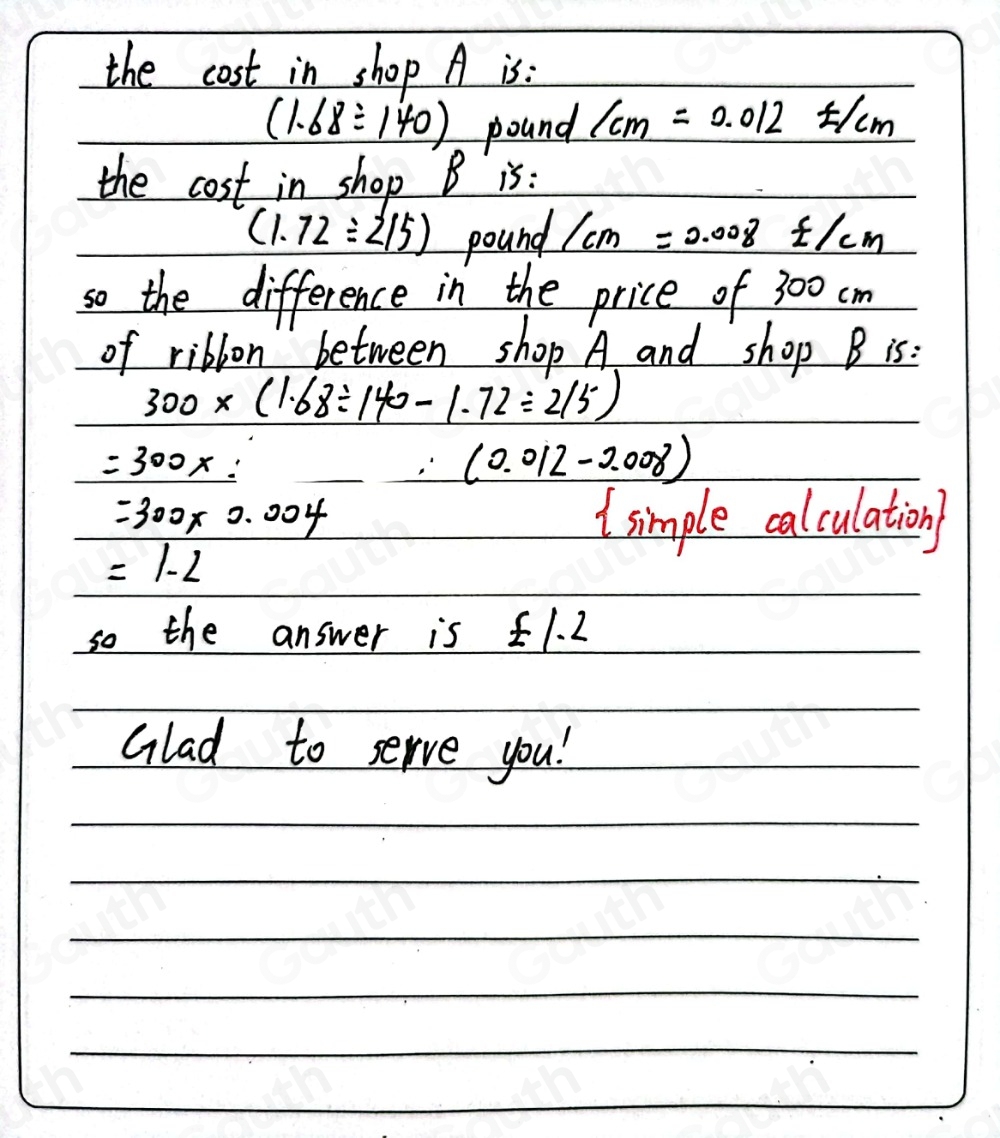 the cost in shop A is:
(1.68÷140) pound/cm = 0.012 £/cm
the cost in shop B is:
(1.72÷215) pound/cm = 0.008 £/cm
so the difference in the price of 300 cm
of ribbon between shop A and shop B is:
300 × (1.68÷140 - 1.72÷215)
= 300 × (0.012 - 0.008)
= 300 × 0.004 {simple calculation}
= 1.2
so the answer is £1.2
Glad to serve you!